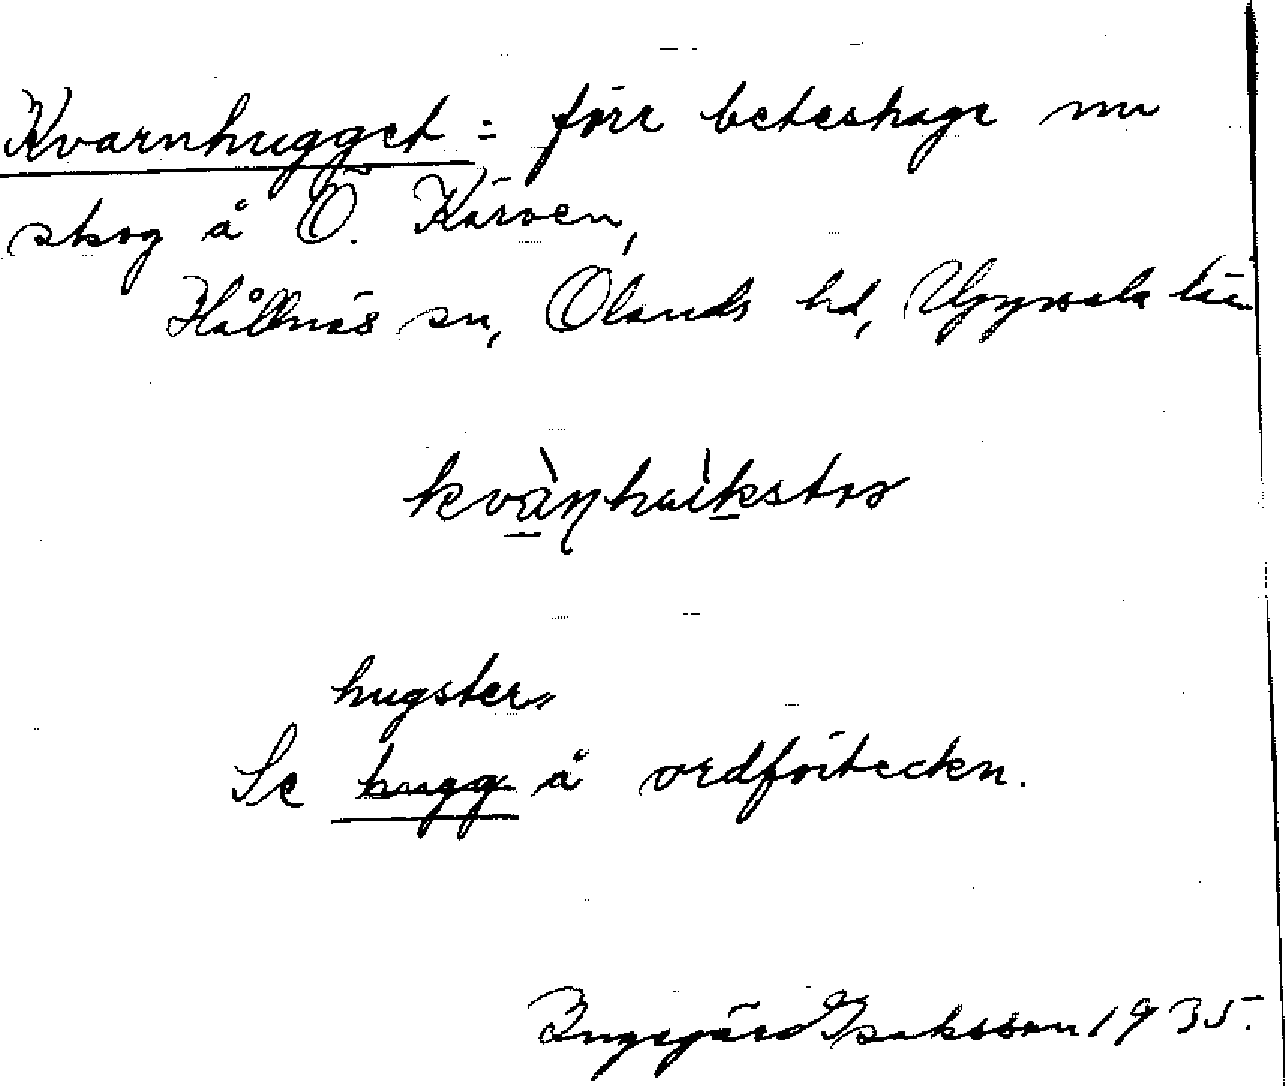 Kvarnhugget = förr beteshage nu
skog å Ö. Kärven,
Hållnäs sn, Olands hd, Uppsala län
hugster,,
Se hugg å ordförteckn.
Ingegärd Isaksson 1935.